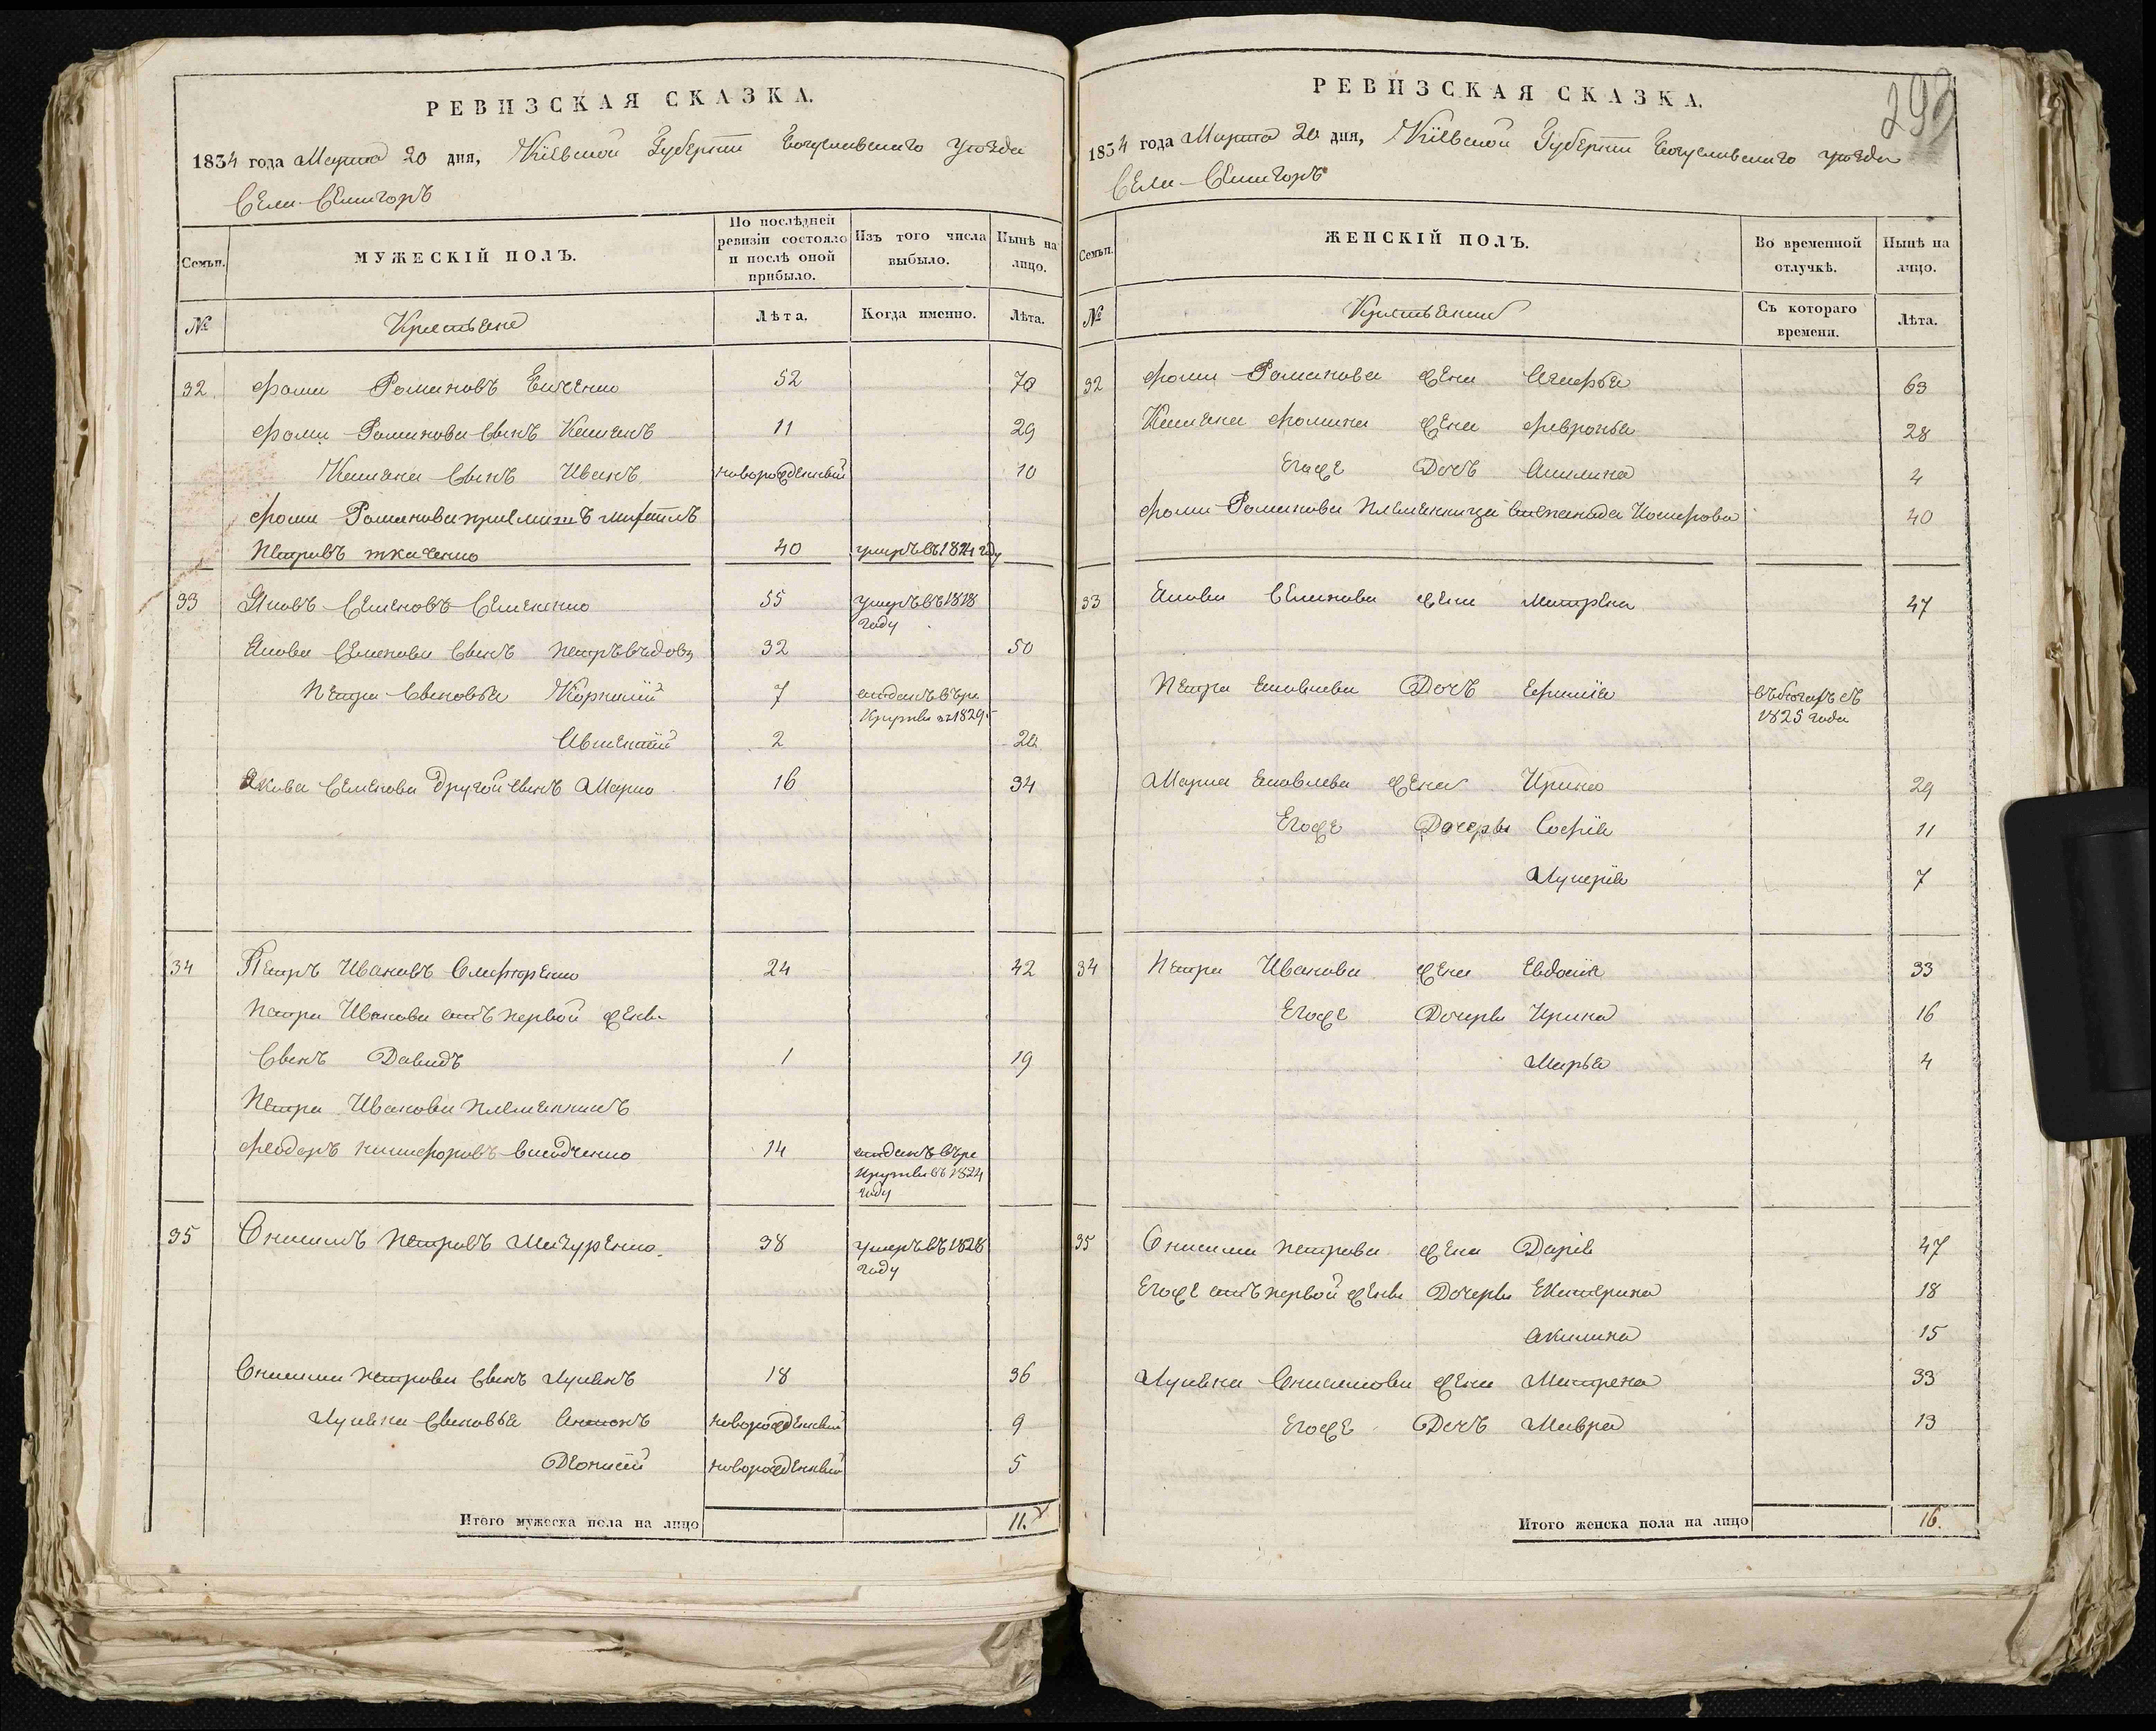 РЕВИЗСКАЯ СКАЗКА.
1834 года Марта 20 дня, Кіевской Губерніи Богуславскаго Уѣзда
Села Семигоръ
Семьи.
МУЖЕСКІЙ ПОЛЪ.
По послѣдней ревизіи состояло и послѣ оной прибыло.
Изъ того числа выбыло.
Нынѣ на лицо.
№
Крестьяне
Лѣта.
Когда именно.
Лѣта.
32 Фома Романовъ 52 70
Фомы Романова сынъ Касьянъ 11 29
Касьяна сынъ Иванъ новорожденный 10
Фомы Романова
Петровъ Ткаченко 40 умеръ въ 1824 году
33 Яковъ Семеновъ Семененко 55 умеръ въ 1818
году
Якова Семенова сынъ Петръ вдовъ 32 50
Петра сыновья Корнилій 7 отданъ въ ре
круты въ 1829
Авксентій 2 20
Якова Семенова другой сынъ Марко 16 34
34 Петръ Ивановъ 24 42
Петра Иванова отъ первой жены
сынъ Давидъ 1 19
Петра Иванова племянникъ
Феодоръ Никифоровъ 14 отданъ въ ре
круты въ 1824
году
35 Онисимъ Петровъ Мачуренко 38 умеръ въ 1828
году
Онисима Петрова сынъ Лукьянъ 18 36
Лукьяна сыновья Антонъ новорожденный 9
Деонисій новорожденный 5
Итого мужеска пола на лицо 11.
РЕВИЗСКАЯ СКАЗКА.
293
1834 года Марта 20 дня, Кіевской Губерніи Богуславскаго уѣзда
Села Семигоръ
Семьи.
ЖЕНСКІЙ ПОЛЪ.
Во временной отлучкѣ.
Нынѣ на лицо.
№
Крестьянки
Съ котораго времени.
Лѣта.
32 Фомы Романова жена Агафья 63
Касьяна Фомина жена Февронья 28
Егоже дочь Акилина 4
Фомы Романова племянница 40
33 Якова Семенова жена Матрена 47
Петра Яковлева дочь въ бегахъ съ
1825 года
Марка Яковлева жена Ирина 29
Егоже дочери Софія 11
Лукерія 7
34 Петра Иванова жена Евдокія 33
Егоже дочери Ирина 16
Марья 4
35 Онисима Петрова жена Дарія 47
Егоже отъ первой жены дочери Екатерина 18
Акилина 15
Лукьяна Онисимова жена Матрена 33
Егоже дочь Мавра 13
Итого женска пола на лицо 16.